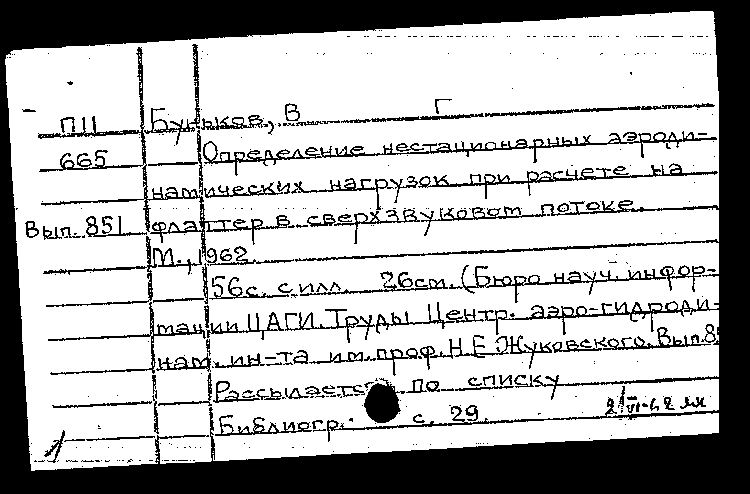 П11 Буньков, В Г
665 Определение нестационарных аэроди-
намических нагрузок при расчете на
Вып. 851 флаттер в сверхзвуковом потоке.
М., 1962.
56с. с илл. 26см. (Бюро науч. инфор-
мации ЦАГИ. Труды Центр. аэро-гидроди-
нам. ин-та им. проф. Н.Е Жуковского. Вып. 8
Рассылается по списку
Библиогр.: с. 29.